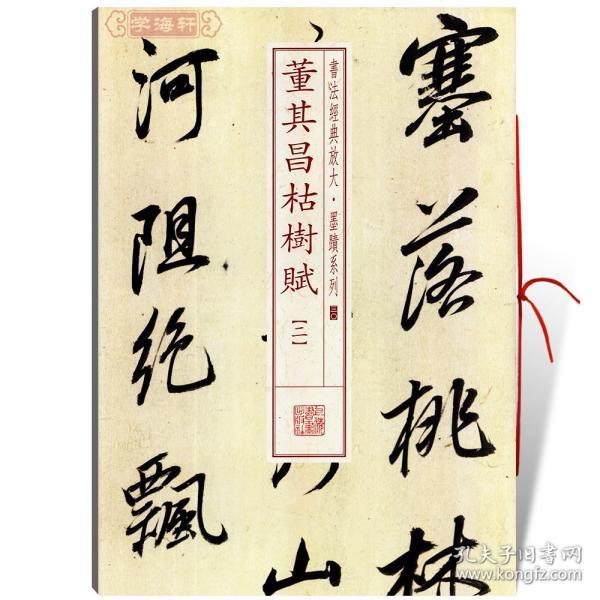 学海轩
書法經典放大·墨蹟系列 三〇
董其昌枯樹賦
【二】
塞落桃林
山
河阻絶飄
孔夫子旧书网
www.kongfz.com